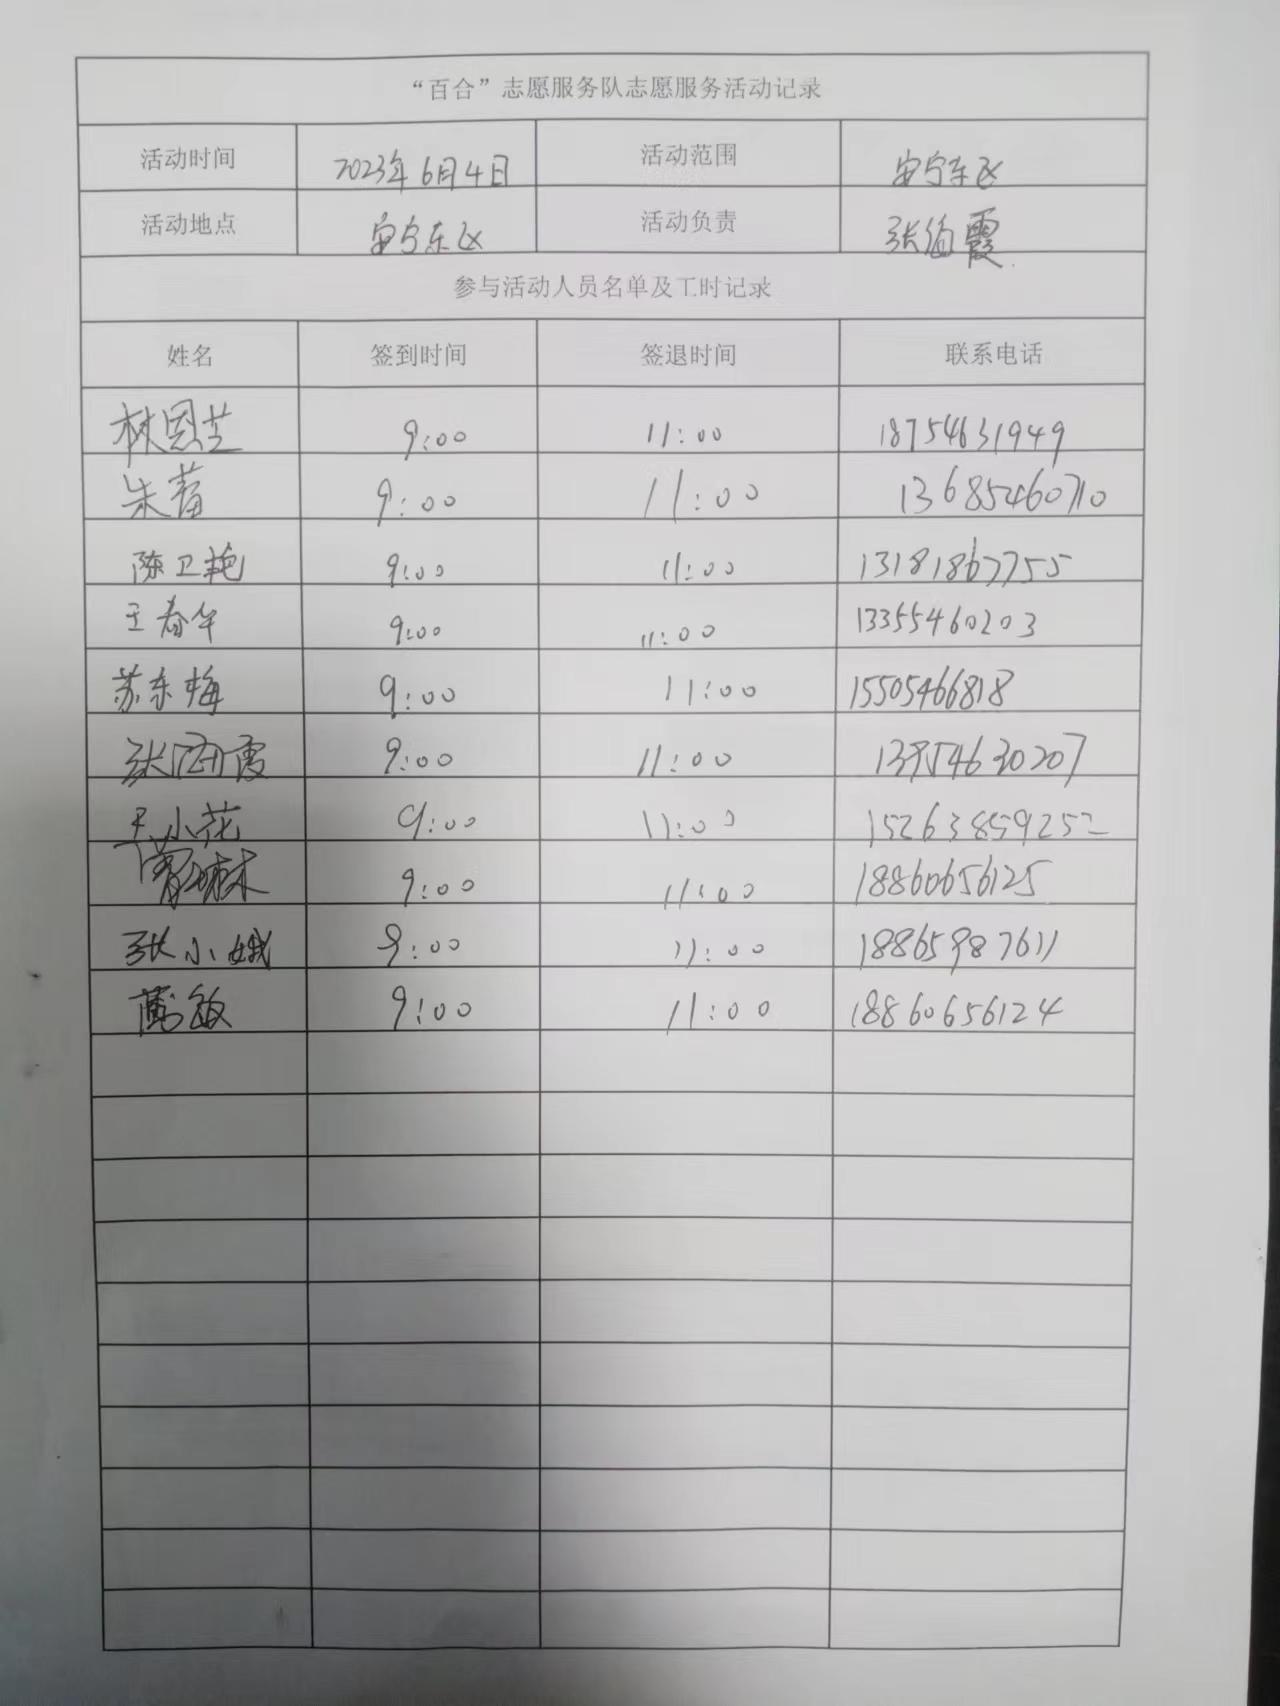 “百合”志愿服务队志愿服务活动记录
活动时间 2023年6月4日 活动范围 安宁东区
活动地点 安宁东区 活动负责 张海霞
参与活动人员名单及工时记录
姓名 签到时间 签退时间 联系电话
林恩芝 9:00 11:00 18754631949
朱蕾 9:00 11:00 13685460710
陈卫艳 9:00 11:00 13181867755
王春华 9:00 11:00 13355460203
苏东梅 9:00 11:00 15505466818
张海霞 9:00 11:00 13954630207
王小花 9:00 11:00 15263859252
9:00 11:00 18860656125
张小娥 9:00 11:00 18865987611
9:00 11:00 18860656124